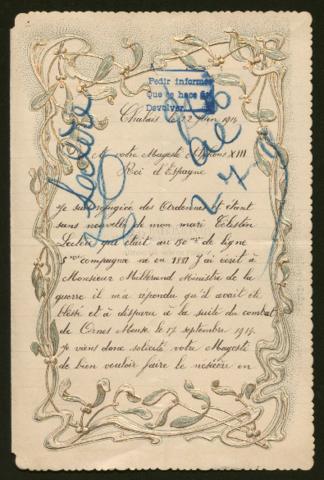 Pedir informes
Que se hace
Devolver
Chalais le 22 Juin 1915
A votre Majesté Alphons XIII
Roi d'Espagne
Je suis réfugiée des Ardennes et étant
sans nouvelle de mon mari Célestin
Leclère qui était au 150 me de ligne
5 me compagnie né en 1881 J'ai écrit à
Monsieur Millerand Ministre de la
guerre il m'a répondu qu'il avait été
blessé et à disparu à la suite du combat
de Ornes Meuse le 17 septembre 1914.
Je viens donc solicité votre Majesté
de bien vouloir faire le nécéssère en
Leclère